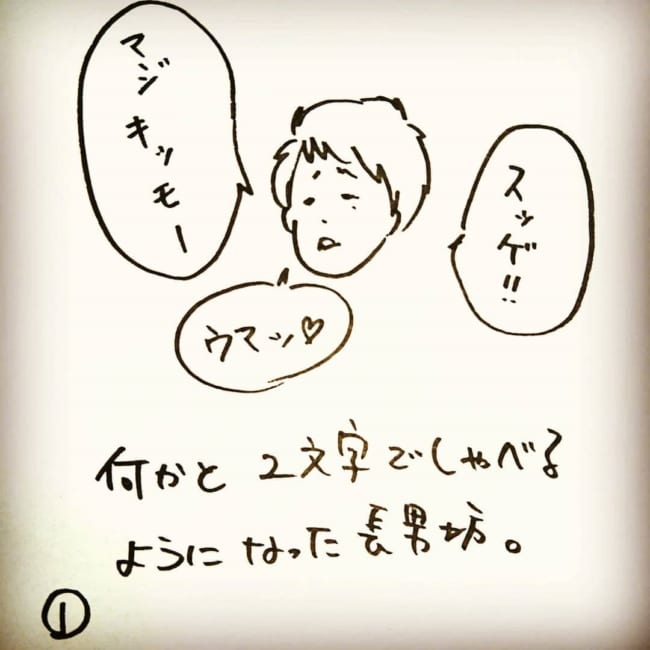 スッゲ!!
マジキッモー
ウマッ♡
何かと2文字でしゃべる
ようになった長男坊。
①